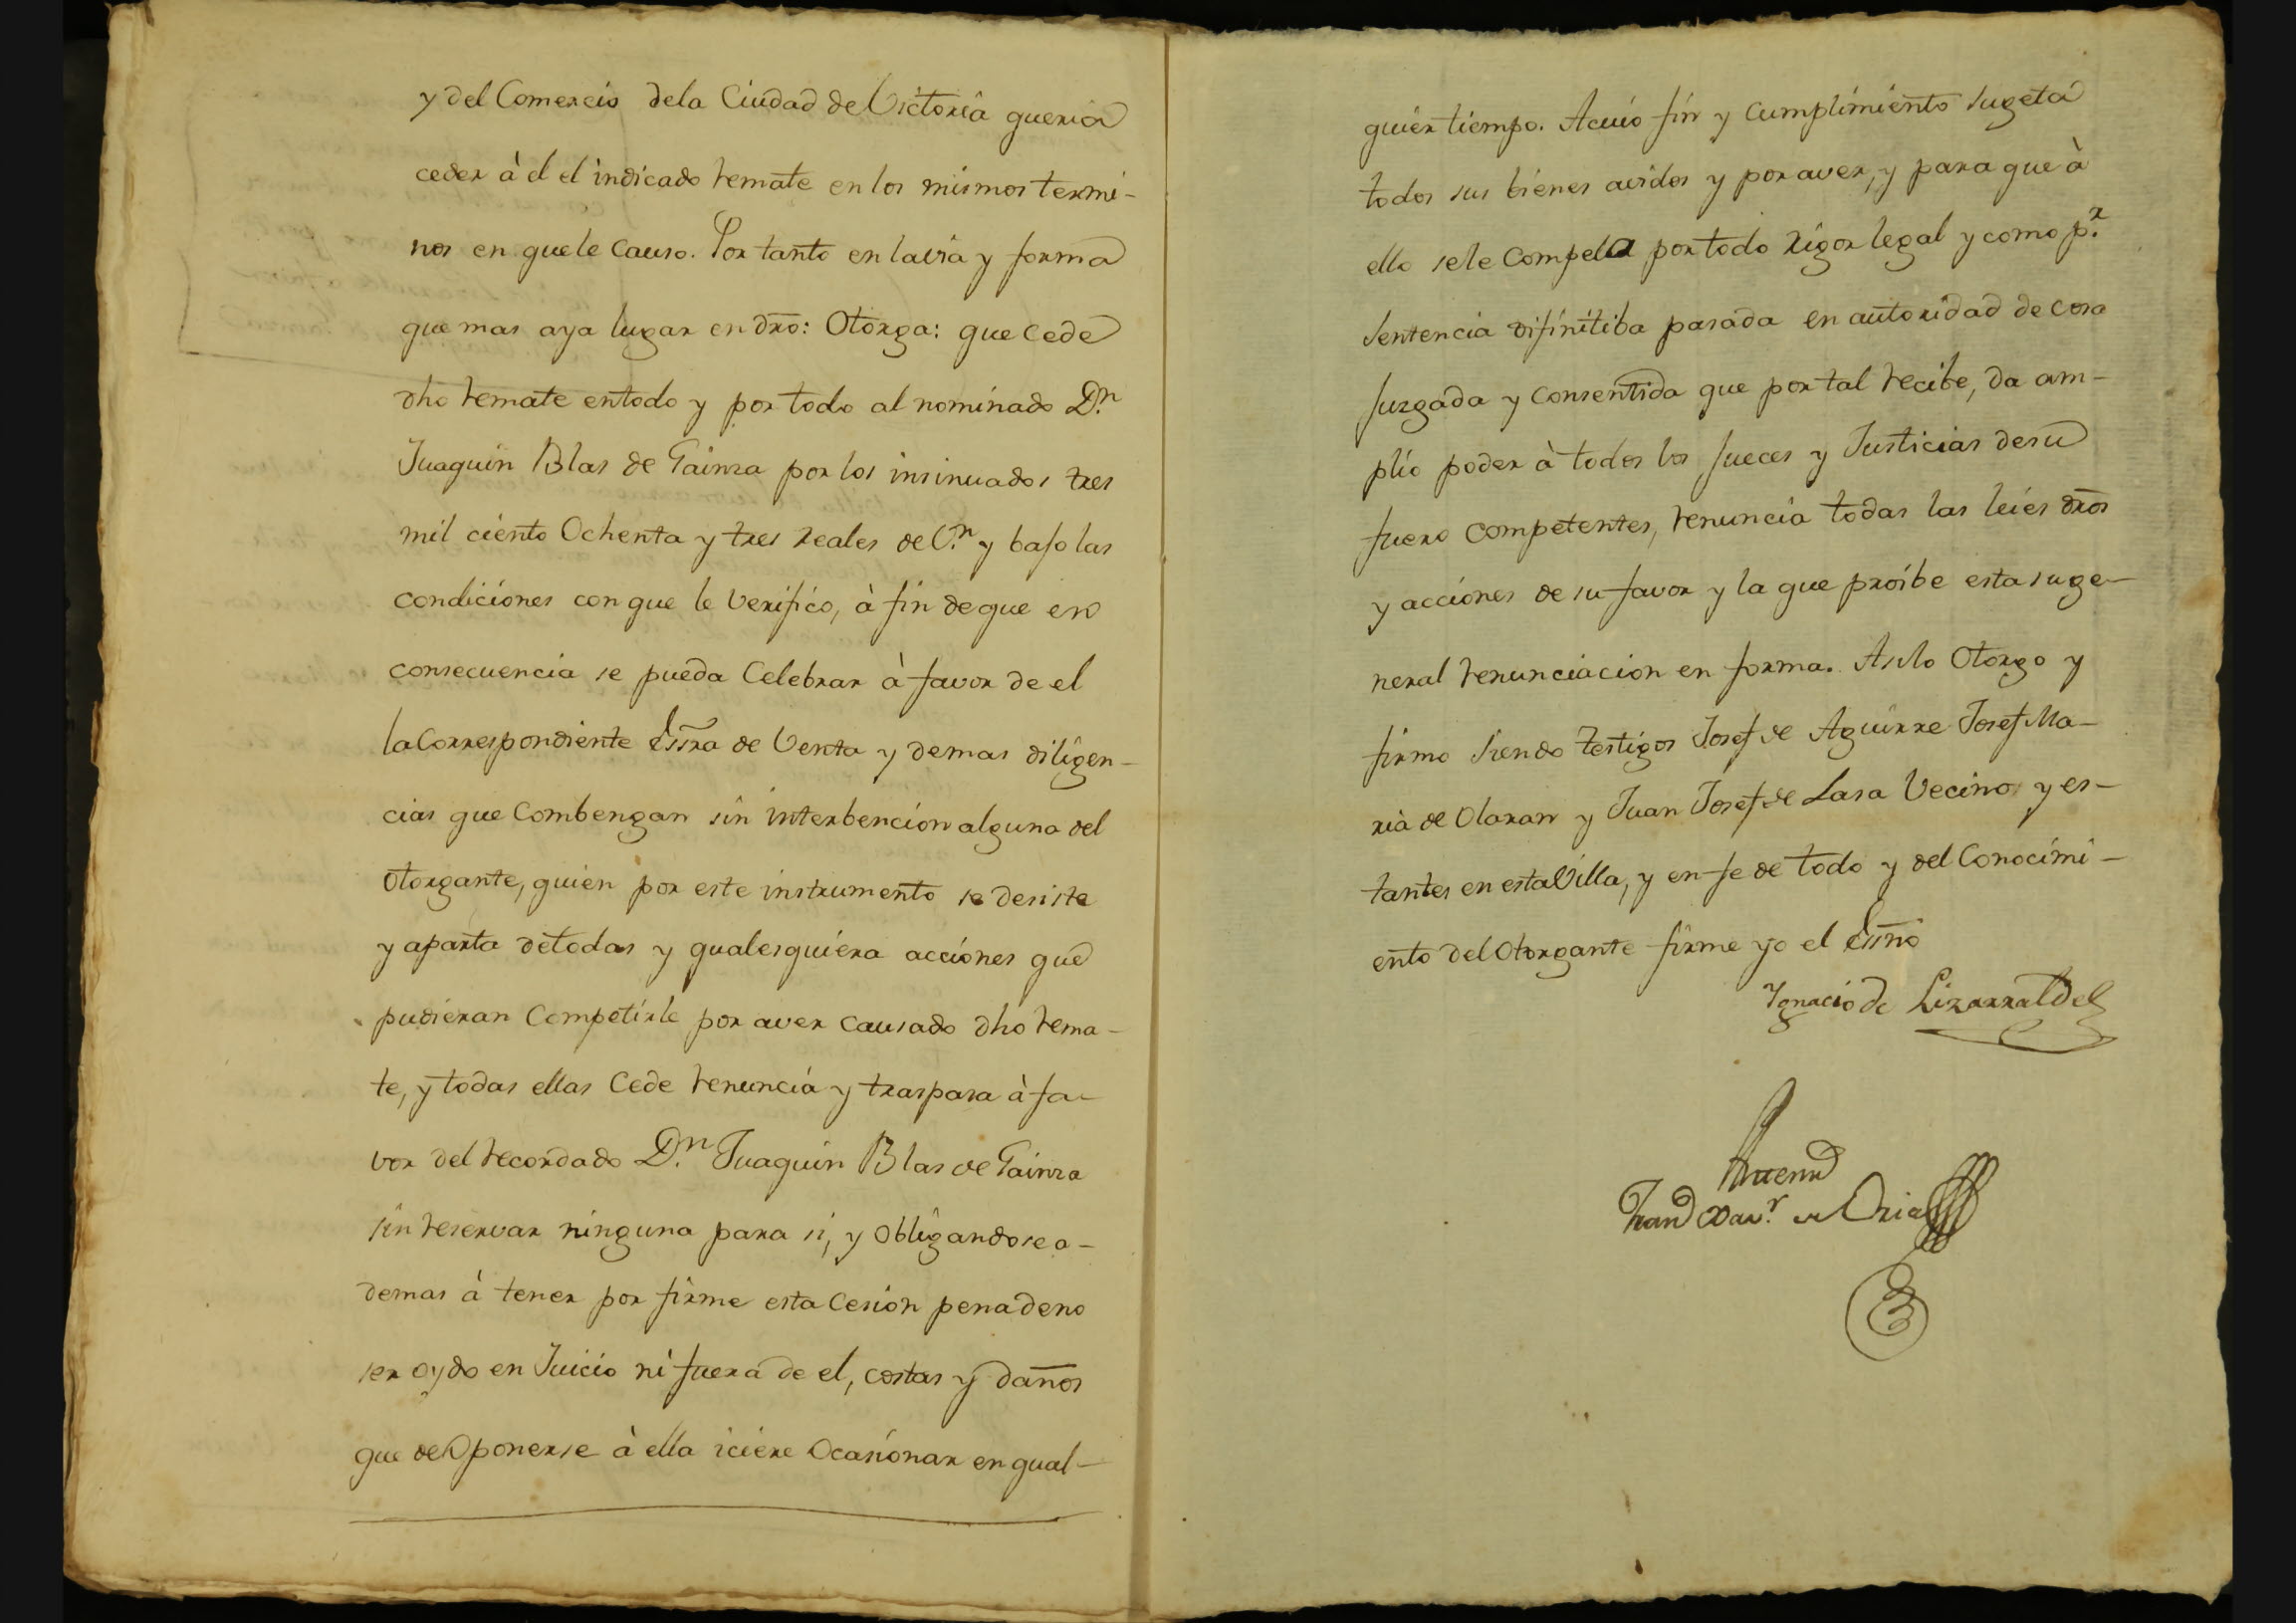 y del Comercio dela Ciudad de Victoria queria
ceder à el el indicado remate en los mismos termi-
nos en que le causo. Por tanto en la via y forma
que mas aya lugar en dro: Otorga: que cede
dho remate entodo y por todo al nominado Dn.
Juaquin Blas de Gainza por los insinuados tres
mil ciento Ochenta y tres reales de Vn. y bajo las
condiciones con que le Verifico, à fin de que en
consecuencia se pueda Celebrar à favor de el
la Correspondiente Essra de Venta y demas diligen-
cias que Combengan sin interbencion alguna del
Otorgante, quien por este instrumento se desiste
y aparta de todas y qualesquiera acciones que
pudieran Competirle por aver causado dho rema-
te, y todas ellas Cede renuncia y traspasa à fa-
vor del recordado Dn. Juaquin Blas de Gainza
sin reservar ninguna para si, y obligandose a-
demas à tener por firme esta Cesion pena deno
ser oydo en Juicio ni fuera de el, costas y daños
que de Oponerse à ella iciere Ocasionar en qual-
quier tiempo. Acuio fin y cumplimiento sugeta
todos sus bienes avidos y por aver, y para que à
ello sele Compela por todo rigor legal y como pr.
Sentencia difinitiba pasada en autoridad de cosa
Juzgada y Consentida que por tal recibe, da am-
plio poder à todos los Jueces y Justicias desu
fuero competentes, renuncia todas las leies dros
y acciones de su favor y la que proibe esta suge-
neral renunciacion en forma. Asilo Otorgo y
firmo Siendo testigos Josef de Aguirre Josef Ma-
ria de Olaran y Juan Josef de Lasa Vecinos y es-
tantes en esta Villa, y en fe de todo y del Conocimi-
ento del Otorgante firme yo el Essno
Ignacio de Lizarralde
Antemi
Xav.r de Oria